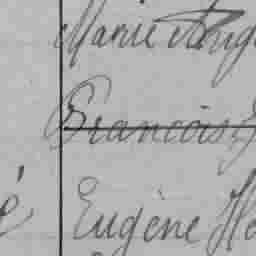 Marie Ang
Francois
é Eugène Ha